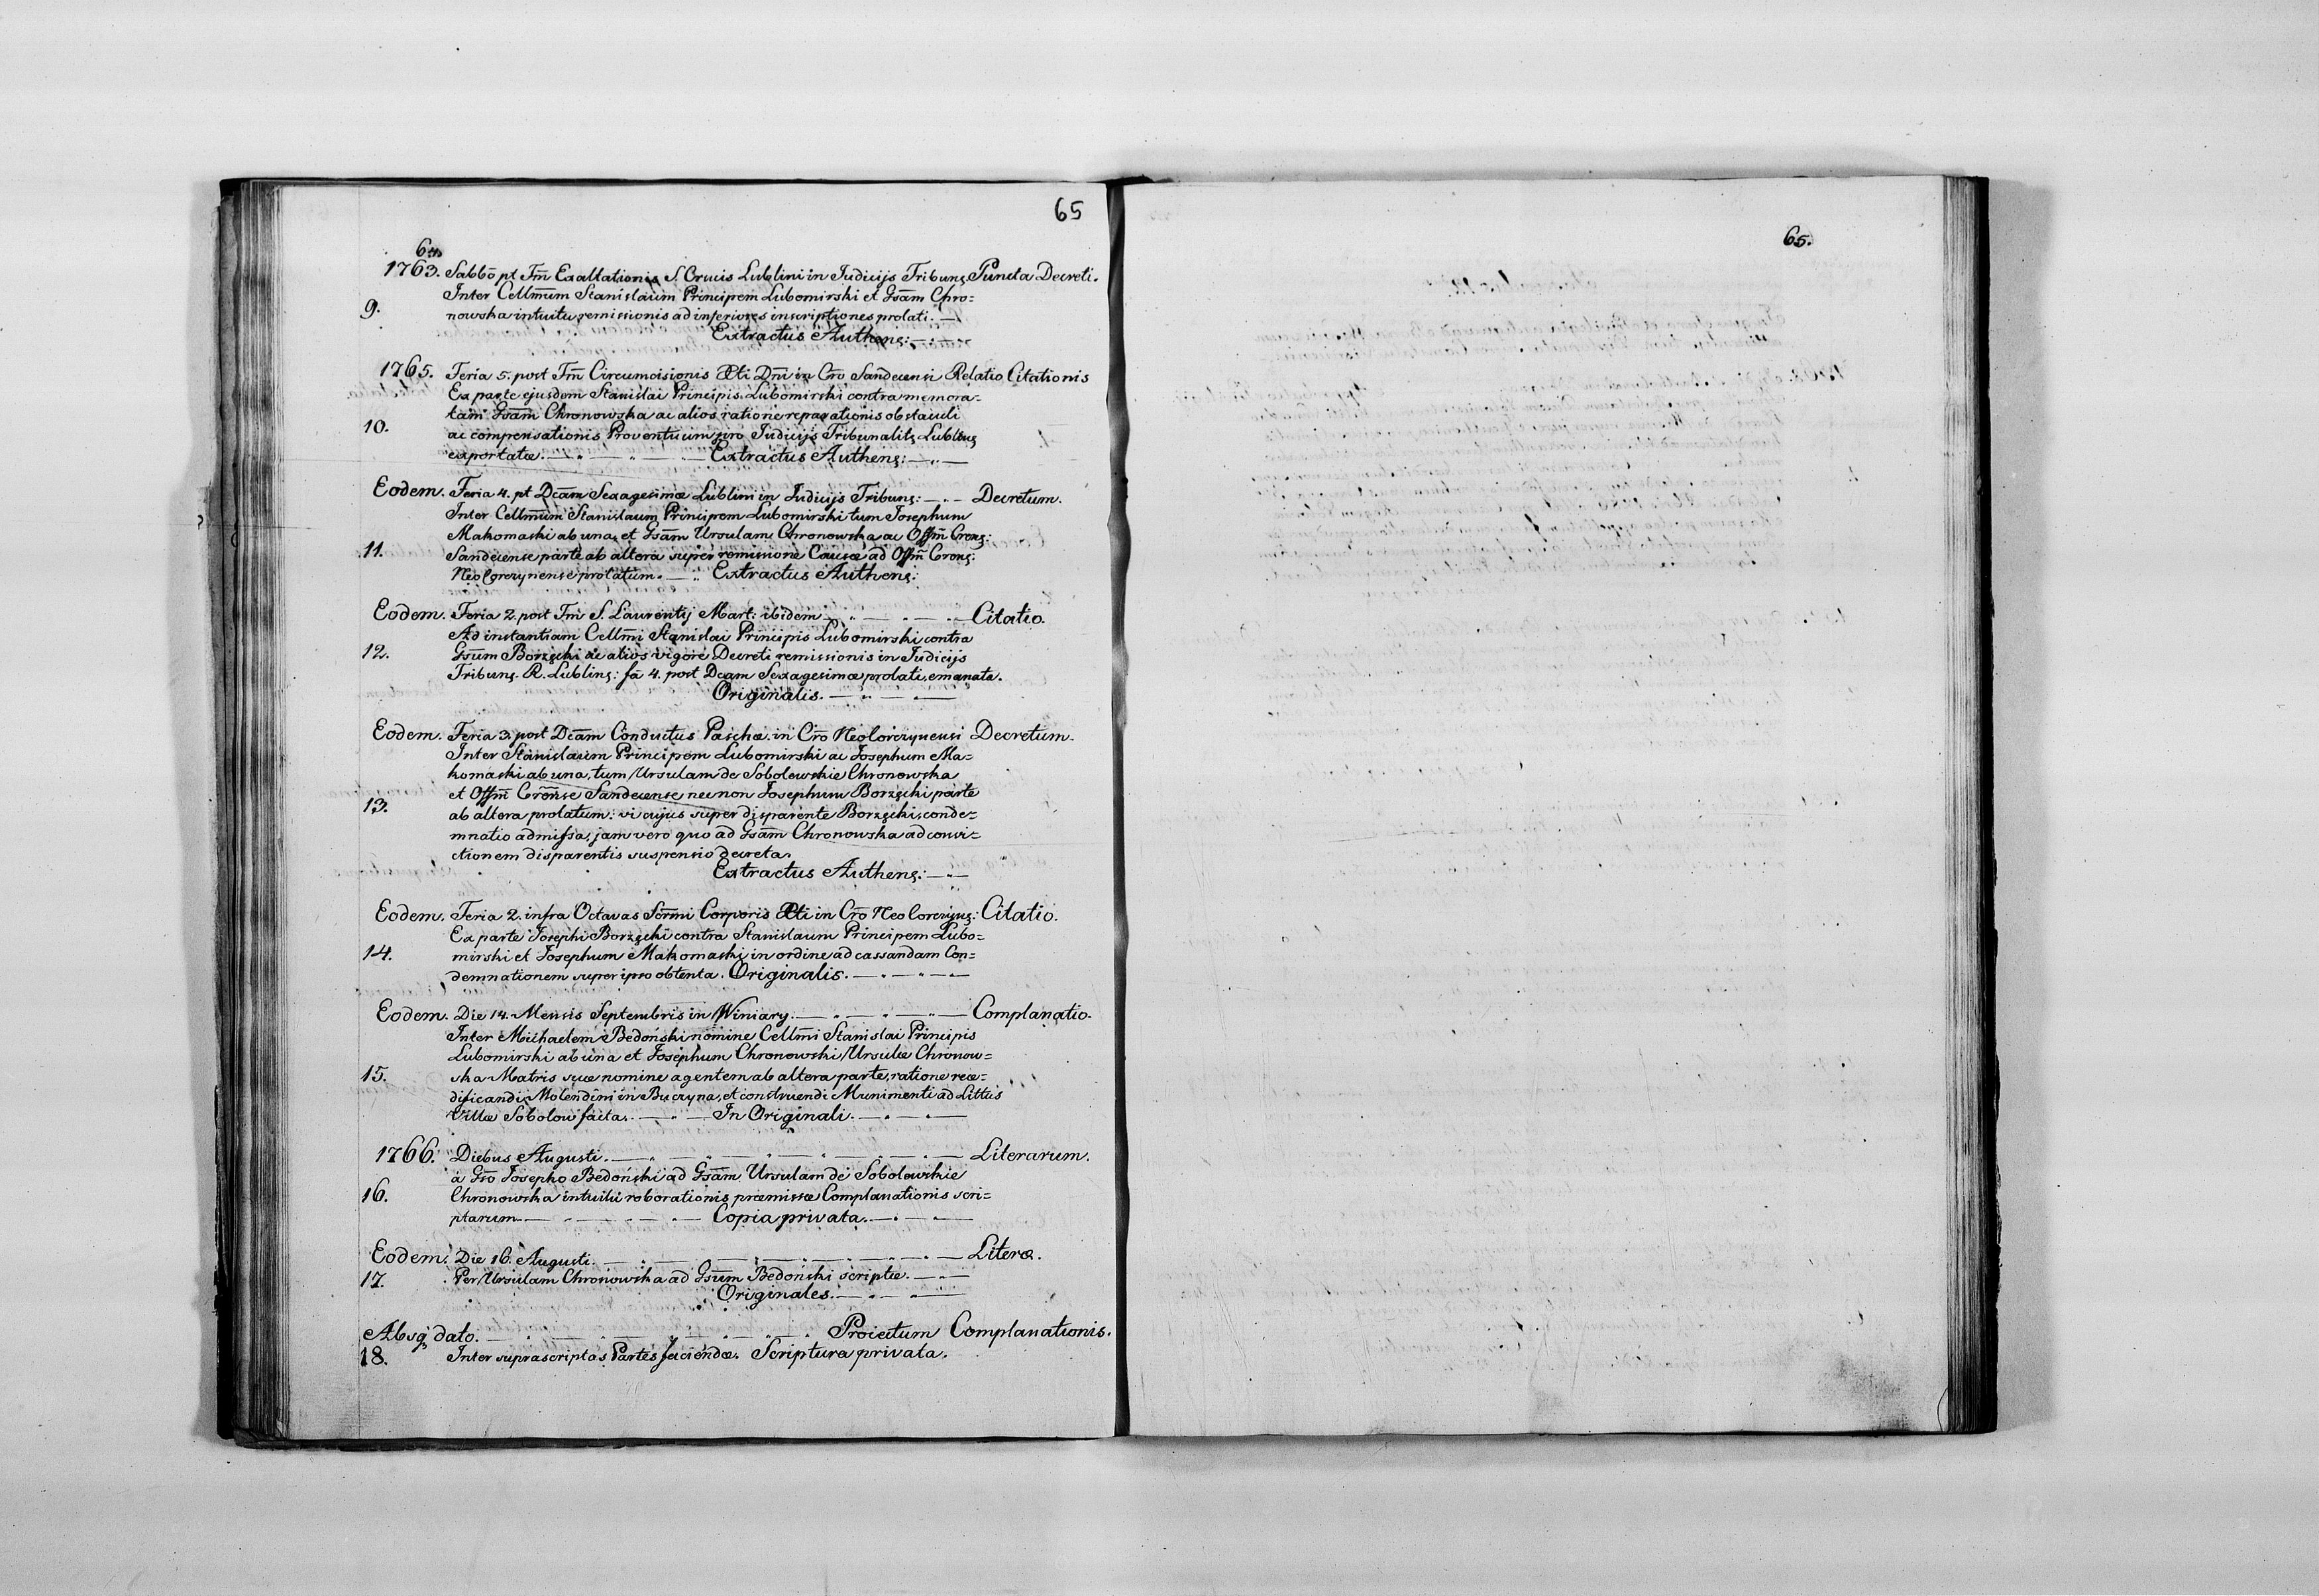 65
64.
1763. Sabbõ pt Fm̃ Exaltationis S. Crucis Lublini in Judicijs Tribunς Puncta Decreti.
Inter Cellm̃um Stanislaum Principem Lubomirski et Gsãm Chro=
9. nowska intuitu remissionis ad inferiores inscriptiones prolati. —
Extractus Authenς: — „ —
1765. Feria 5. post Fm̃ Circumcisionis Xti Dñi in Crõ Sandecensi Relatio Citationis
Ex parte ejusdem Stanislai Principis Lubomirski contra memora=
tam Gsãm Chronowska ac alios ratione reparationis obstaculi
10. ac compensationis Proventuum pro Judicijs Tribunalitς Lublinς
exportatæ. — „ — „ — Extractus Authenς: — „ —
Eodem. Feria 4. pt Dcãm Sexagesimæ Lublini in Judicijs Tribunς: — „ — Decretum.
Inter Cellm̃um Stanislaum Principem Lubomirski tum Josephum
Makomaski ab una, et Gsãm Ursulam Chronowska ac Offm̃ Crenς:
11. Sandecense parte ab altera super remissione Causæ ad Offm̃ Crenς:
Neolorczynense prolatum. — „ Extractus Authenς:
Eodem. Feria 2. post Fm̃ S. Laurentij Mart: ibidem — „ — „ — Citatio.
Ad instantiam Cellm̃i Stanislai Principis Lubomirski contra
12. Gsũm Borzęcki ac alios vigore Decreti remissionis in Judicijs
Tribunς. R. Lublinς: fã 4. post Dcam Sexagesimæ prolati, emanata.
Originalis. — „ — —
Eodem. Feria 3. post Dcãm Conductus Paschæ in Crõ Neolorczynensi Decretum.
Inter Stanislaum Principem Lubomirski ac Josephum Ma=
komaski ab una, tum Ursulam de Sobolewskie Chronowska
et Offm̃ Crõnse Sandecense necnon Josephum Borzęcki parte
13. ab altera prolatum: vi cujus super disparente Borzęcki, conde=
mnatio admissa, jam vero quo ad Gsãm Chronowska ad convi=
ctionem disparentis suspensio decreta.
Extractus Authenς: — „ —
Eodem. Feria 2. infra Octavas Scrm̃i Corporis Xti in Crõ Neolorczynς: Citatio.
Ex parte Josephi Borzęcki contra Stanislaum Principem Lubo=
14. mirski et Josephum Makomaski in ordine ad cassandam Con=
demnationem super ipso obtenta. Originalis. — „ — „ —
Eodem. Die 14. Mensis Septembris in Winiary. — „ — „ — Complanatio.
Inter Michaelem Bedoński nomine Cellm̃i Stanislai Principis
Lubomirski ab una et Josephum Chronowski Ursulæ Chronow=
15. ska Matris suæ nomine agentem ab altera parte, ratione reæ=
dificandi Molendini in Buczyna, et construendi Munimenti ad Littus
Villæ Sobolow facta. — „ — In Originali. — „ —
1766. Diebus Augusti. — „ — „ — „ — „ — Literarum.
à Gsõ Josepho Bedoński ad Gsãm Ursulam de Sobolewskie
16. Chronowska intuitu roborationis præmissæ Complanationis scri=
ptarum — „ — „ — Copia privata. — „ —
Eodem. Die 16. Augusti. — „ — „ — „ — „ — Literæ.
17. Per Ursulam Chronowska ad Gsũm Bedoński scriptæ. — „ —
Originales. — „ —
Absq̨ dato. — „ — „ — „ — Proiectum Complanationis.
18. Inter suprascriptas Partes faciendæ. Scriptura privata.
65.